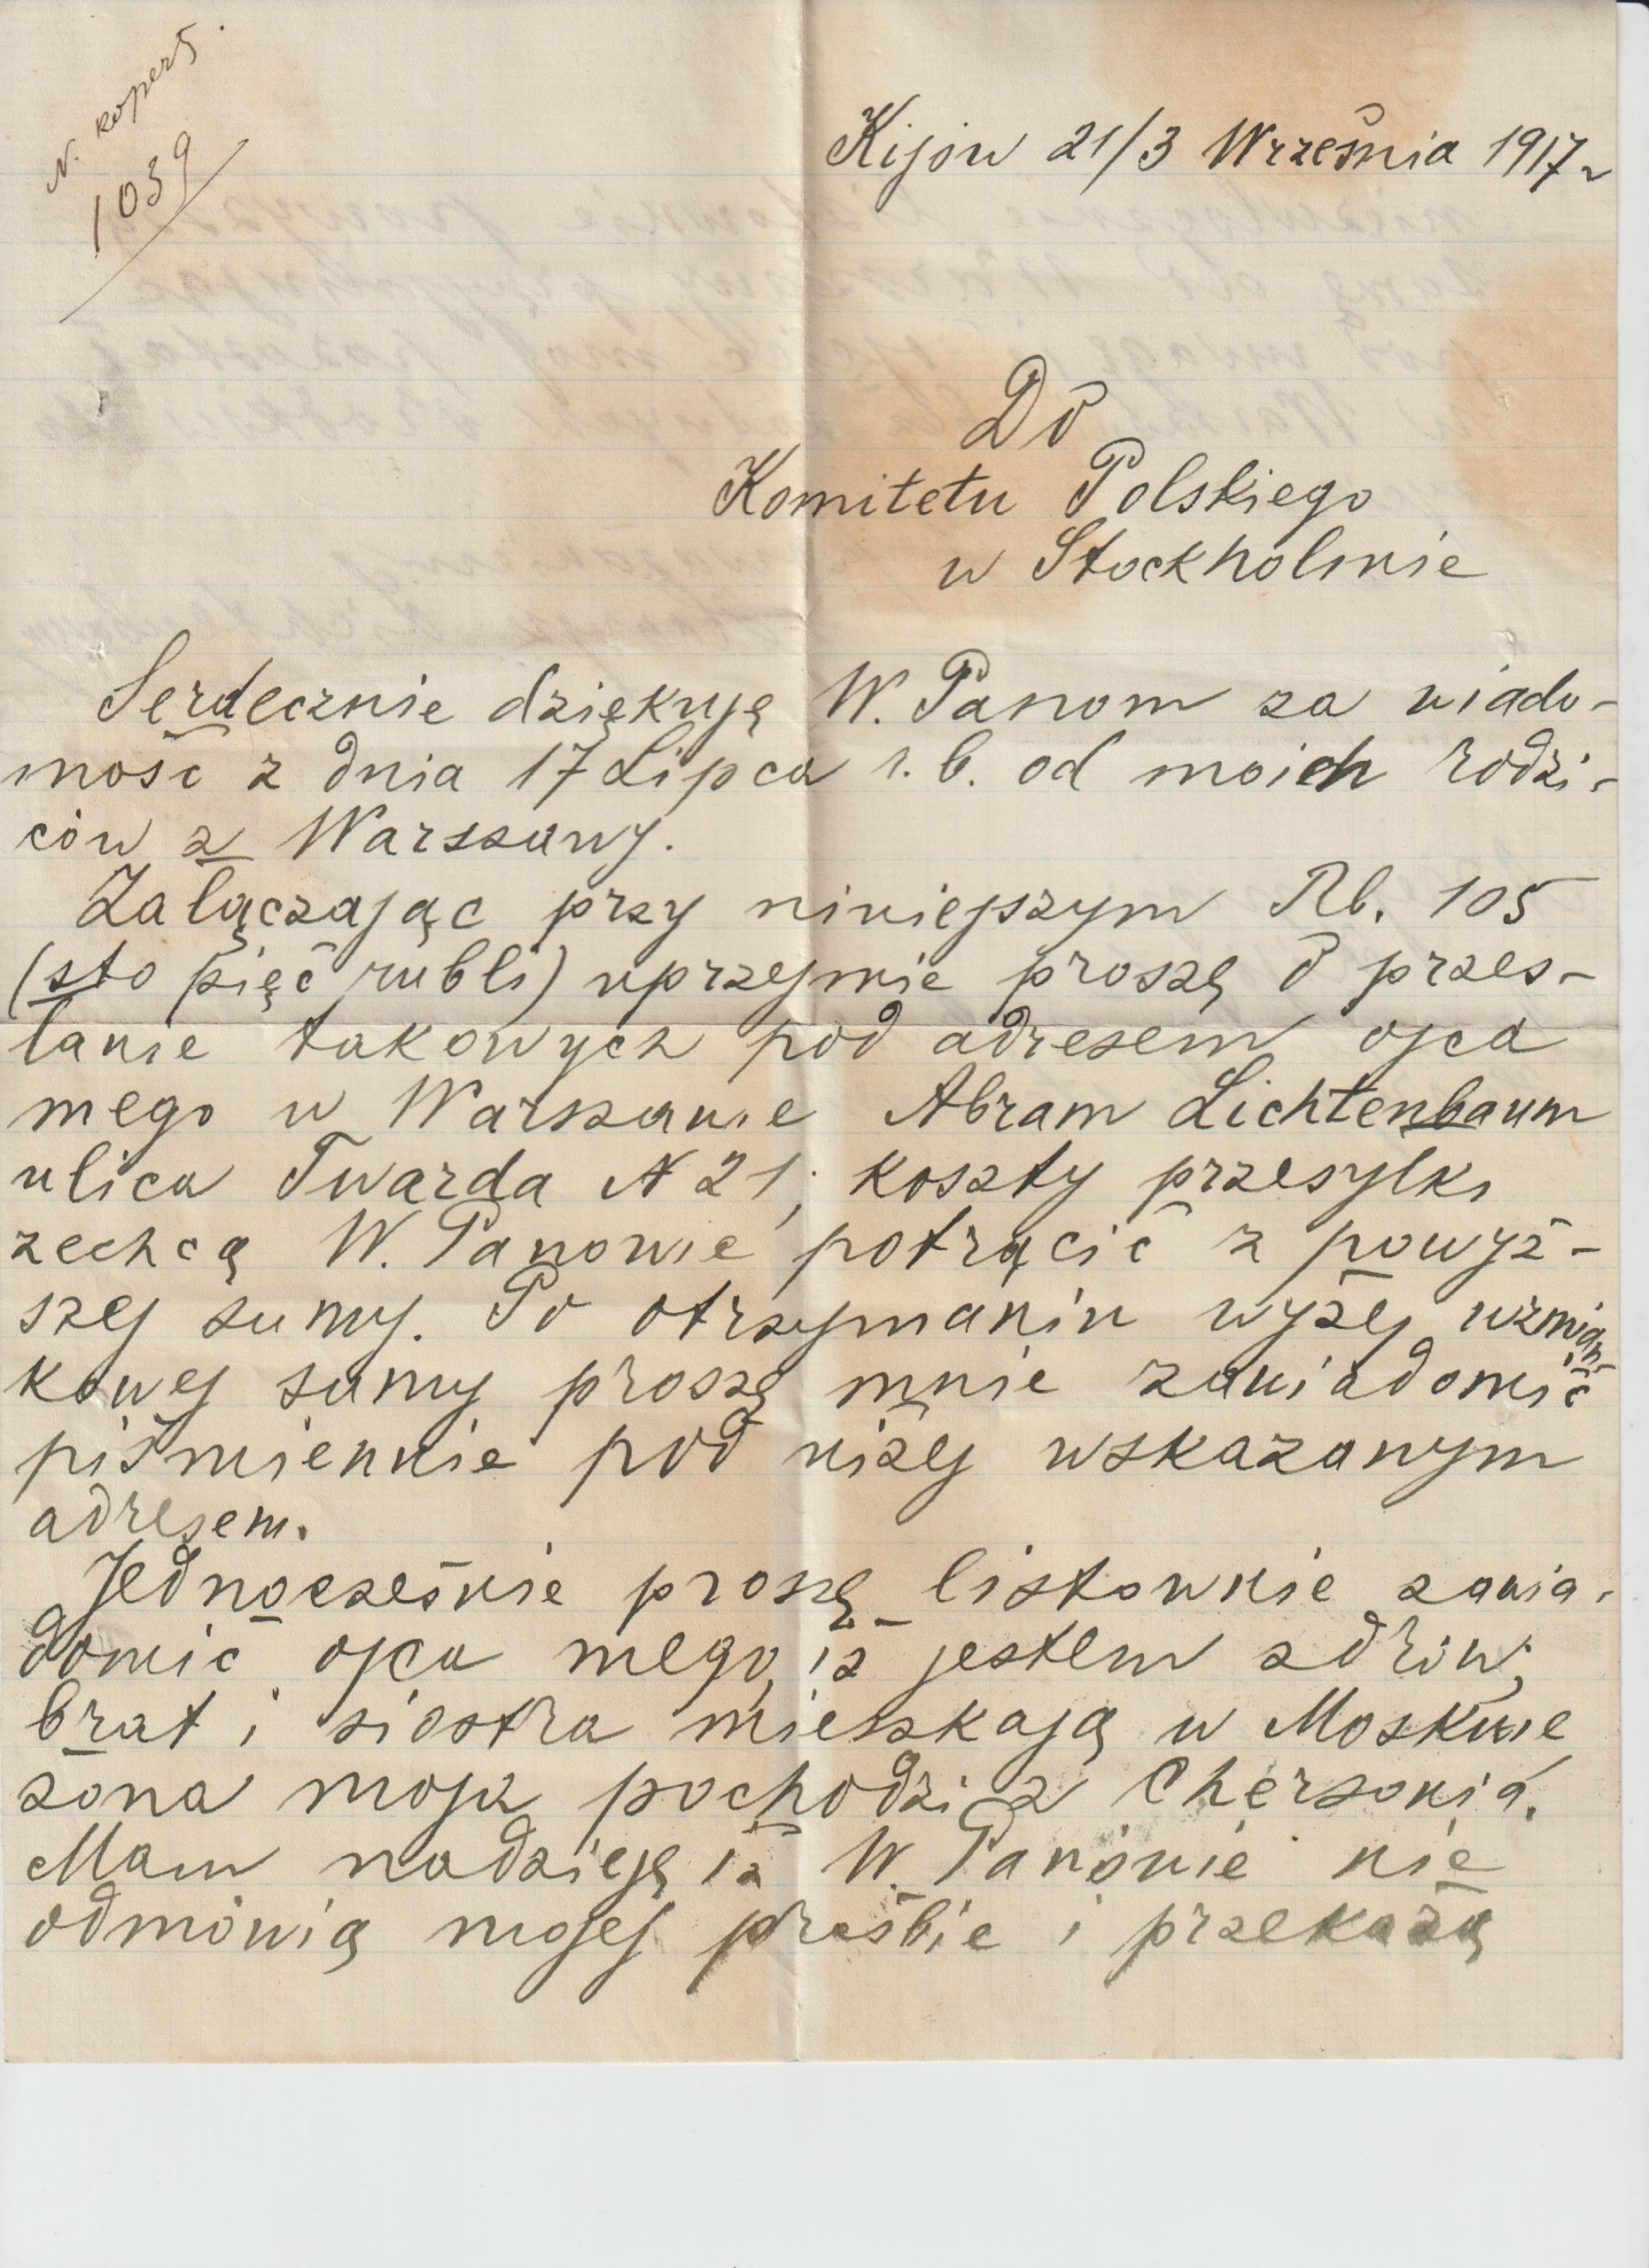 N. kopert.
1039
Kijów 21/3 Września 1917 r
Do
Komitetu Polskiego
w Stockholmie
Serdecznie dziękuję W. Panom za wiado-
mość z dnia 17 Lipca r. b. od moich rodzi-
ców z Warszawy.
Załączając przy niniejszym Rb. 105
(sto pięć rubli) uprzejmie proszę o przes-
łanie takowych pod adresem ojca
mego w Warszawie Abram Lichtenbaum
ulica Twarda N 21; koszty przesyłki
zechcą W. Panowie potrącić z powyż-
szej sumy. Po otrzymaniu wyżej wzmian-
kowej sumy proszę mnie zawiadomić
piśmiennie pod niżej wskazanym
adresem.
Jednocześnie proszę listownie zawia-
domić ojca mego, iż jestem zdrów;
brat i siostra mieszkają w Moskwie
żona moja pochodzi z Chersonia.
Mam nadzieję iż W. Panowie nie
odmówią mojej prośbie i przekażą